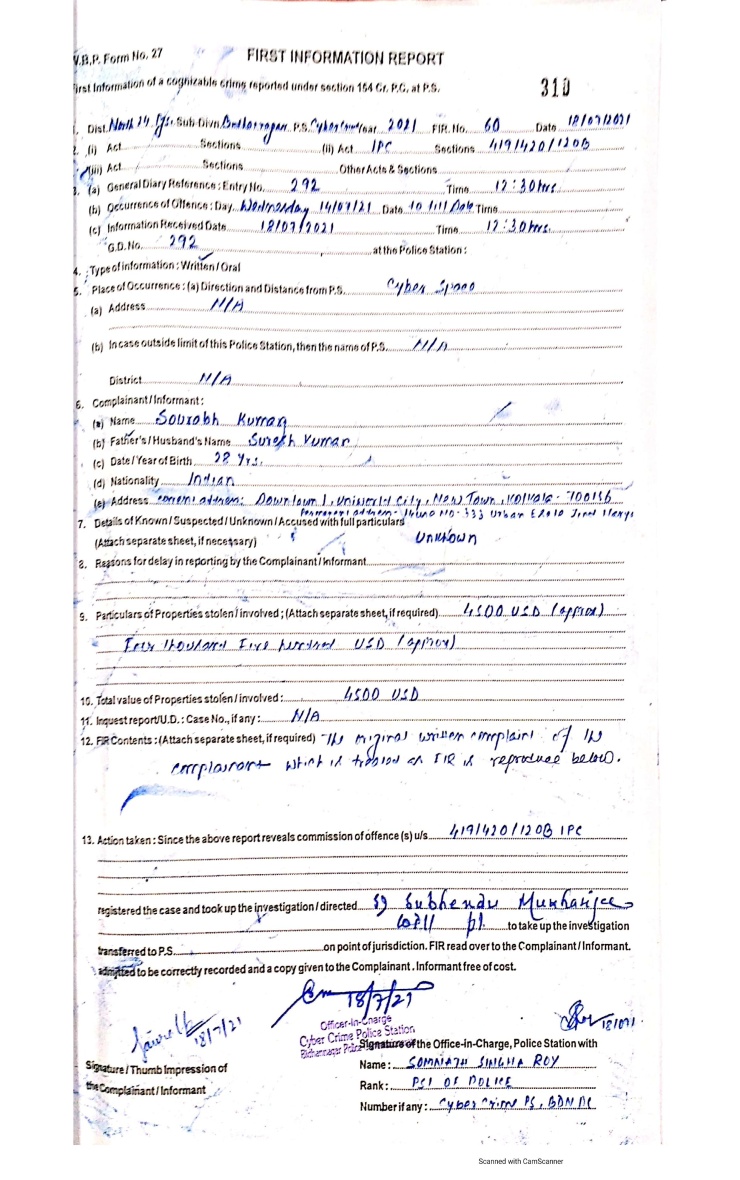 W.B.P. Form No. 27
FIRST INFORMATION REPORT
First Information of a cognizable crime reported under section 154 Cr. P.C. at P.S.
310
1. Dist. North 24 Pgs. Sub-Divn. Bidhannagar P.S. Cyber Crime Year 2021 FIR. No. 60 Date 18/07/2021
2. (i) Act Sections (ii) Act IPC Sections 419/420/120B
(iii) Act Sections Other Acts & Sections
3. (a) General Diary Reference : Entry No. 292 Time 12:30 hrs
(b) Occurrence of Offence : Day Wednesday 14/07/21 Date to till Date Time
(c) Information Received Date 18/07/2021 Time 12:30 hrs.
G.D. No. 292 at the Police Station :
4. Type of information : Written / Oral
5. Place of Occurrence : (a) Direction and Distance from P.S. Cyber Space
(a) Address N/A
(b) In case outside limit of this Police Station, then the name of P.S. N/A
District N/A
6. Complainant / Informant :
(a) Name Sourabh Kumar
(b) Father's / Husband's Name Suresh Kumar
(c) Date / Year of Birth 28 Yrs.
(d) Nationality Indian
(e) Address address: Downtown 1, Uniworld City, New Town, Kolkata - 700156
Permanent address - House No - 333 Urban
7. Details of Known / Suspected / Unknown / Accused with full particulars
(Attach separate sheet, if necessary) Unknown
8. Reasons for delay in reporting by the Complainant / Informant
9. Particulars of Properties stolen / involved ; (Attach separate sheet, if required) 4500 USD (approx)
Four thousand Five hundred USD (approx)
10. Total value of Properties stolen / involved : 4500 USD
11. Inquest report/U.D. : Case No., if any : N/A
12. FIR Contents : (Attach separate sheet, if required) The original written complaint of the
complainant which is treated as FIR is reproduce below.
13. Action taken : Since the above report reveals commission of offence (s) u/s 419/420/120B IPC
registered the case and took up the investigation / directed SI Subhendu Mukharjee
to take up the investigation
transferred to P.S. on point of jurisdiction. FIR read over to the Complainant / Informant.
admitted to be correctly recorded and a copy given to the Complainant . Informant free of cost.
18/7/21
Officer-in-Charge
Cyber Crime Police Station
18/7/21
Signature of the Office-in-Charge, Police Station with
Signature / Thumb Impression of
the Complainant / Informant
Name : SOMNATH SINGHA ROY
Rank : PSI OF POLICE
Number if any : Cyber Crime PS, BDN PC
Scanned with CamScanner